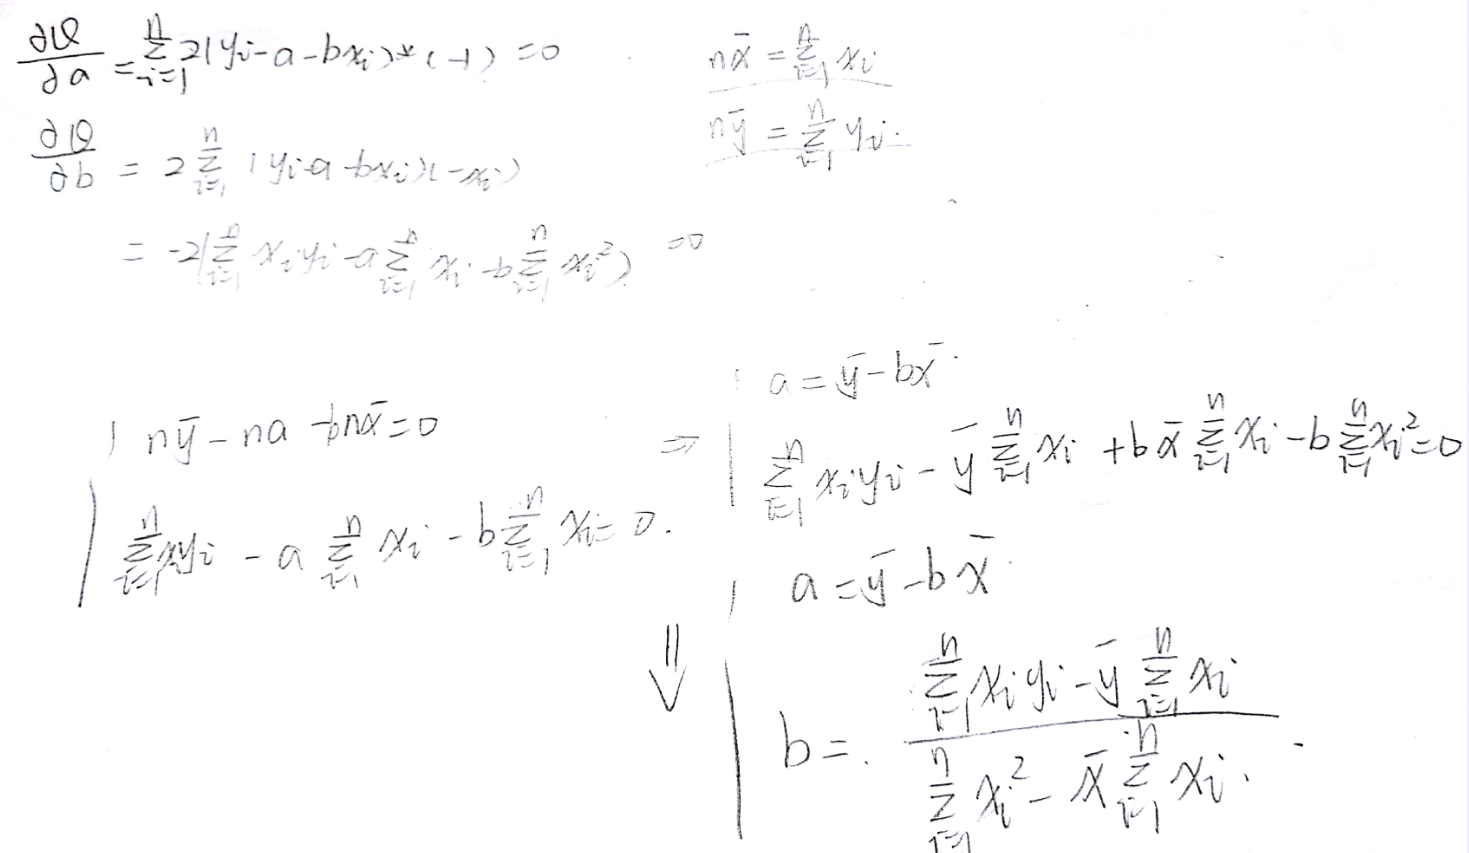 ∂Q/∂a = Σ_{i=1}^{n} 2(yi - a - bxi)*(-1) = 0
nx̄ = Σ_{i=1}^{n} xi
nȳ = Σ_{i=1}^{n} yi.
∂Q/∂b = 2 Σ_{i=1}^{n} (yi - a - bxi)(-xi)
= -2(Σ_{i=1}^{n} xiyi - a Σ_{i=1}^{n} xi - b Σ_{i=1}^{n} xi²) = 0
{ nȳ - na - bnx̄ = 0
Σ_{i=1}^{n} xiyi - a Σ_{i=1}^{n} xi - b Σ_{i=1}^{n} xi = 0.
⇒ { a = ȳ - bx̄.
Σ_{i=1}^{n} xiyi - ȳ Σ_{i=1}^{n} xi + bx̄ Σ_{i=1}^{n} xi - b Σ_{i=1}^{n} xi² = 0
⇓ { a = ȳ - bx̄
b = (Σ_{i=1}^{n} xiyi - ȳ Σ_{i=1}^{n} xi) / (Σ_{i=1}^{n} xi² - x̄ Σ_{i=1}^{n} xi).